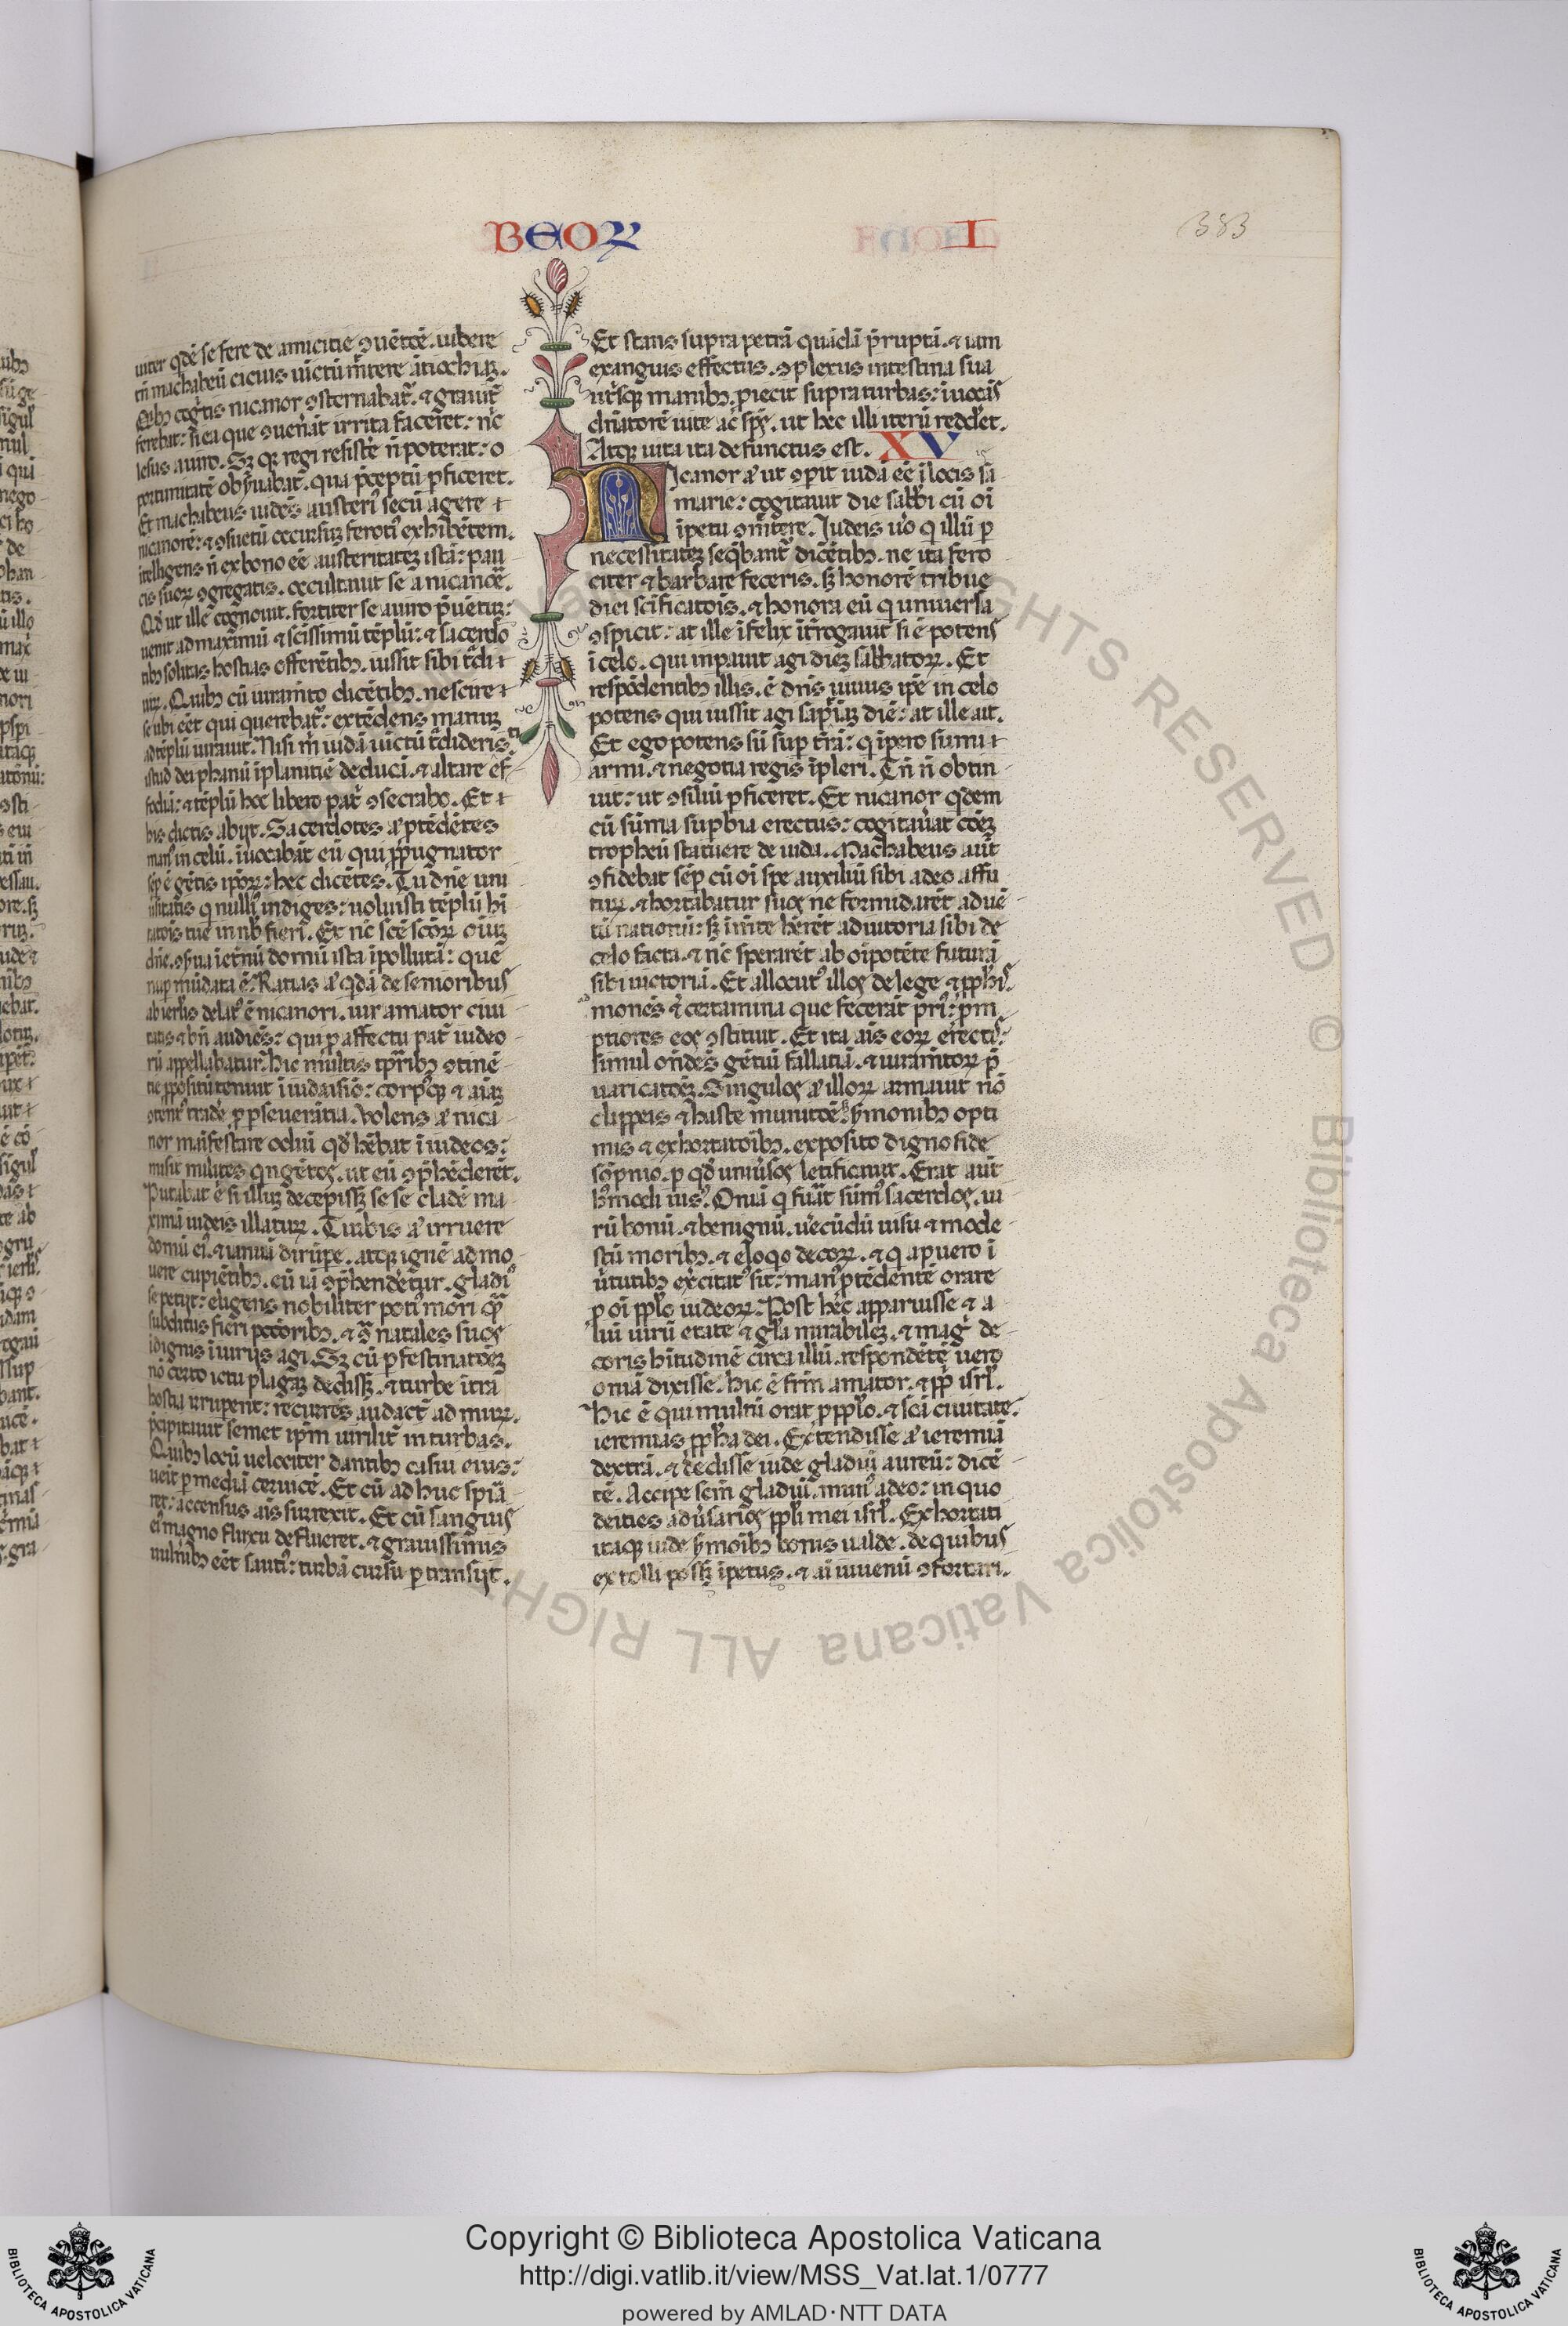 BEOꝜ I
383
uiter qdē se fere de amicitie ɔuētōe. iubere
tñ machabeū cicius uictū mͥtere ātiochiaꝫ.
Qibꝫ cogͥtis nicanor ɔsternabat᷑. ⁊ grauit᷑
ferebat: si ea que ɔuen̄at irrita facēret: nͨ
lesus a uiro. Sꝫ qꝛ regi resistē n̄ poterat: o
portunitatē obẜuabat. qua p̄ceptū ꝑficeret.
Et machabeus uidēs austeriꝰ secū agere ⁊
nicanorē: ⁊ ɔsuetū occursuꝫ ferotiꝰ exhibētem.
ītelligens n̄ ex bono eē austeritateꝫ istā: pau
cis suoꝝ ɔgregatis. occultauit se a nicanōe.
Qd̓ ut ille cognouit. fortiter se a uiro p̄uētuꝫ:
uenit ad maximū ⁊ scīssimū tēplū: ⁊ sacerdo
tibꝫ solitas hostias offerētibꝫ. iussit sibi t᷑di ⁊
uiꝝ. Quibꝫ cū iuramͥto dicētibꝫ. nescire ⁊
se ubi eēt qui querebat᷑: extēdens manuꝫ
ad tēplū iurauit. Nisi m̄ iudā uictū t᷑dideritis
istud dei phanū ī planitiē deducā. ⁊ altare ef
fodiā: ⁊ tēplū hoc libero pat᷑ ɔsecrabo. Et ⁊
his dictis abijt. Sacerdotes aͣ ꝓtēdētes
manꝰ in celū. īuocabāt eū qui ꝓpugnator
sēꝑ ē gētis ip̄oꝝ: hec dicētes. Tu dn̄e uni
uersitatis q nulliꝰ indiges: uoluisti tēplū hī
tatōis tue in nōb fieri. Et nͨ scē scōꝝ oiūꝫ
dn̄e. ɔẜua ieternū domū istā īpollutā: que
nuꝑ mūdata ē. Ratias aͣ qdā de senioribus
ab ierlis̄ delatꝰ ē nicanori. uir amator ciui
tatis ⁊ bn̄ audiēs: qui ꝑ affectu pat᷑ iudeo
rū appellabatur. hic multis tꝑribꝫ ɔtinē
tie ꝓpositū tenuit ī iudaismō: corpꝰqꝫ ⁊ aīaꝫ
ɔtentꝰ tradē ꝑ ꝑseuerātia. Volens aͣ nica
nor manifestare odiū qd̓ hēbat ī iudeos:
misit milites qngētos. ut eū ɔp̄hēderēt.
Putabat ē si illuꝫ decepissꝫ se se cladē ma
ximā iudeis illatuꝝ. Turbis aͣ irruere
domū eiꝰ. ⁊ ianuā dirūpe. atqꝫ ignē admo
uere cupiētibꝫ. cū iā ɔp̄hendētur. gladiꝰ
se petijt: eligens nobiliter potiꝰ mori qͣ̄
subditus fieri pctōribꝫ. ⁊ ɔͣ natales suos
īdignis iniurijs agi. Sꝫ cū ꝑ festinatōeꝫ
nō certo ictu plagaꝫ dedissꝫ. ⁊ turbe itrā
hostia irruperīt: recurrēs audact᷑ ad muꝝ.
p̄cipitauit semet ip̄m uirilit᷑ in turbas.
Quibꝫ locū uelociter dantibꝫ casui eius:
ueīt ꝑ mediā ceruicē. Et cū adhuc spīa
ret: accensus aīs surrexit. Et cū sanguis
eiꝰ magno fluxu deflueret. ⁊ grauissimis
uulnībꝫ eēt sautiꝰ: turbā cursu ꝑtransijt.
Et stans supra petrā quādā p̄ruptā. ⁊ iam
exanguis effectus. ɔplexus intestina sua
ut᷑sqꝫ manibꝫ. ꝓiecit supra turbas: īuocās
dn̄atorē uite ac spꝰ. ut hec illi iterū reddet.
Atqꝫ uita ita defunctus est. XV
Nicanor aͣ ut ɔꝑit iudā eē ī locis sa
marie: cogitauit die sabbi cū oī
īpetu ɔmͥtere. Judeis uͦo q illū ꝑ
necessitateꝫ seqbant᷑ dicētibꝫ. ne ita fero
citer ⁊ barbare feceris. sꝫ honorē tribue
diei scīficatōis. ⁊ honora eū q uniuersa
ɔspicit: at ille īfelix ītrogauit si ē potens
ī celo. qui inpauit agi dieꝫ sabbatoꝝ. Et
respōdentibꝫ illis. ē dn̄s uiuus ip̄e in celo
potens qui iussit agi septīaꝫ diē: at ille ait.
Et ego potens sū suꝑ t᷑rā: q īpero sumi ⁊
arma. ⁊ negotia regis īpleri. Tn̄ n̄ obtin
uit: ut ɔsiliū ꝑficeret. Et nicanor qdem
cū sūma suꝑbia erectus: cogitauͣat cōeꝫ
tropheū statuere de iuda. Machabeus aūt
ɔfidebat sēꝑ cū oī spe auxiliū sibi adeo affu
tuꝝ. ⁊ hortabatur suos ne formidarēt aduē
tū nationū: sꝫ ī mēte hērēt adiutoria sibi de
celo facta. ⁊ nͨ sperarēt ab oīpotēte futurā
sibi uictoriā. Et allocutꝰ illos de lege ⁊ ꝓphīs
monēs ⁊ certamina que fecerāt priꝰ: ꝓm
ptiores eos ɔstituit. Et ita aīs eoꝝ erectis
simul on̄dēs gētiū fallatiā. ⁊ iuramͥtoꝝ p̄
uaricatōeꝫ. Singulos aͣ illoꝝ armauit nō
clippeis ⁊ haste munitōe. ẜmonibꝫ opti
mis ⁊ exhortatōibꝫ. exposito digno fide
sōpnio. ꝑ qd̓ uniuͥsos letificauit. Erat aūt
hꝰmodi uisꝰ. Oniā q fuāt sūmꝰ sacerdos. ui
rū bonū. ⁊ benignū. uͤecūdū uisu ⁊ mode
stū moribꝫ. ⁊ eloqo decoꝝ. ⁊ q a puero ī
uͥtutibꝫ ex̄citatꝰ sit: manꝰ ꝓtēdentē orare
ꝑ oī ppl̄o iudeoꝝ. Post hͨ apparuisse ⁊ a
liū uirū etate ⁊ gl̄a mirabileꝫ. ⁊ magͥ de
coris hītudinē circa illū. respōndētē uero
oniā dixisse. hic ē frm̄ amator. ⁊ ppl̄i isrl̄.
hic ē qui multū orat ꝓ ppl̄o. ⁊ scā ciuitate.
ieremias ꝓpha dei. Extendisse aͣ ieremiā
dextrā. ⁊ dedisse iude gladiū aureū: dicē
tē. Accipe scm̄ gladiū. munꝰ a deo: in quo
deicies aduͥsarios ppl̄i mei isrl̄. Exhortati
itaqꝫ iude ẜmōibꝫ bonis ualde. de quibus
extolli possꝫ īpetus. ⁊ aī iuuenū ɔfortari.
Copyright © Biblioteca Apostolica Vaticana
http://digi.vatlib.it/view/MSS_Vat.lat.1/0777
powered by AMLAD·NTT DATA
BIBLIOTECA APOSTOLICA VATICANA
BIBLIOTECA APOSTOLICA VATICANA